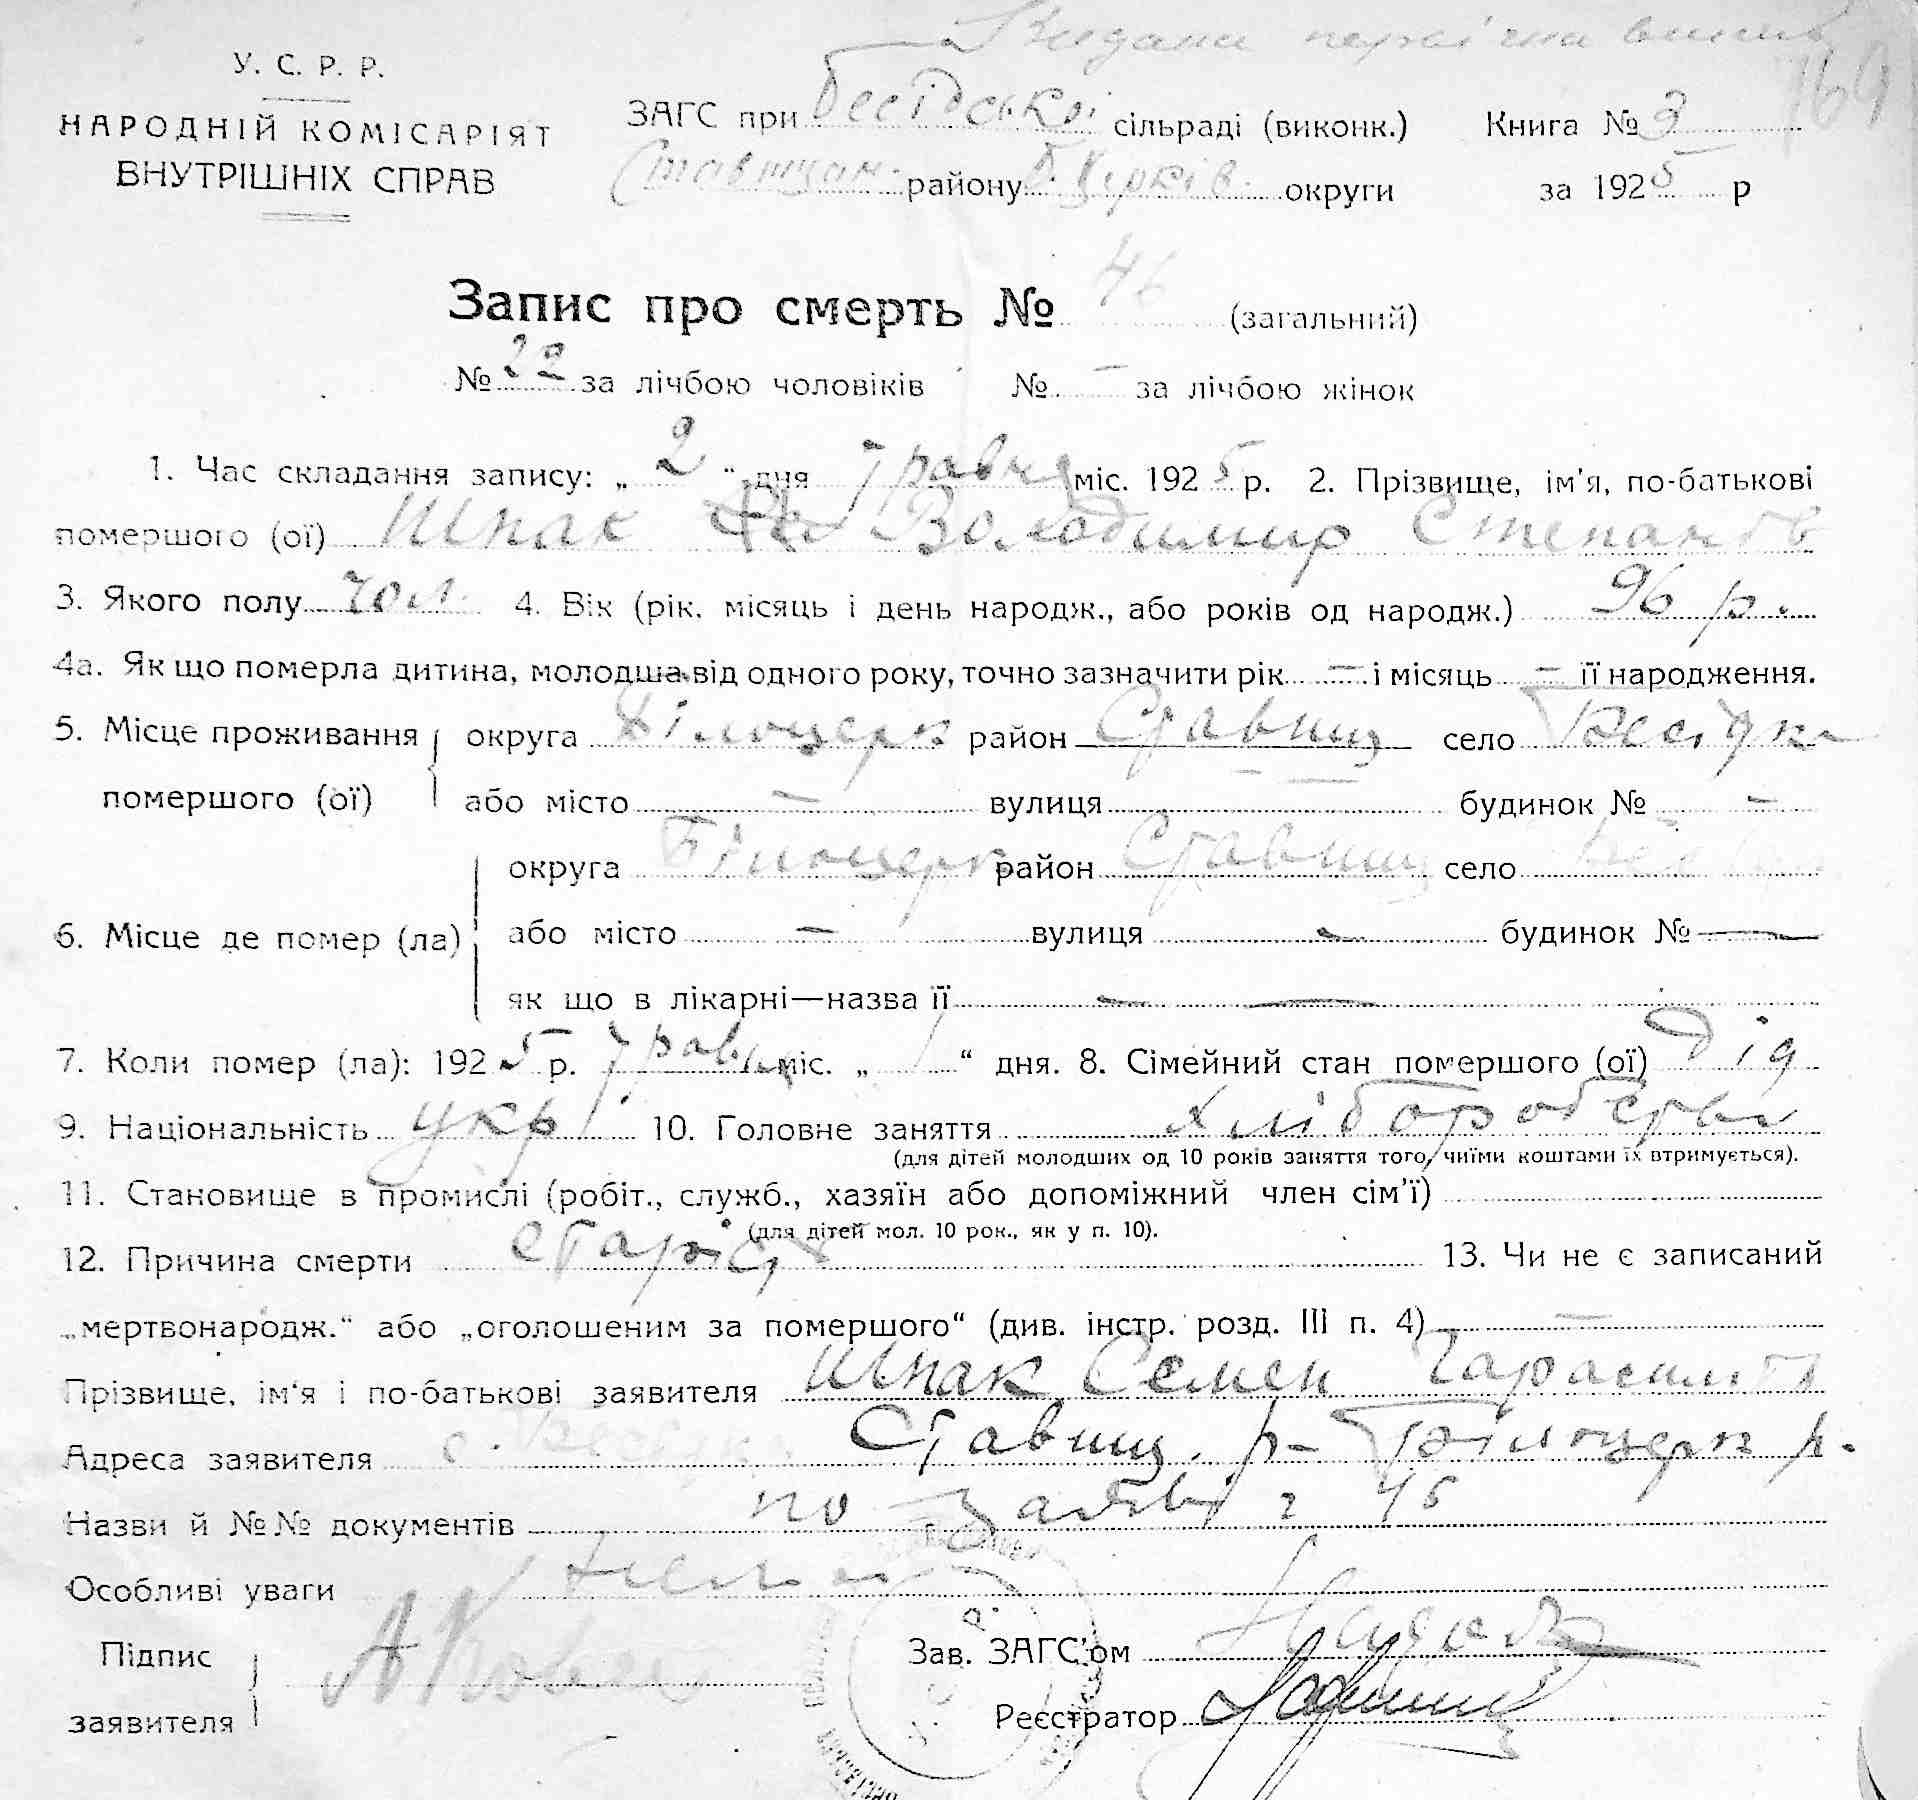 Видана
169
У. С. Р. Р.
НАРОДНІЙ КОМІСАРІЯТ
ВНУТРІШНІХ СПРАВ
ЗАГС при Бесідській сільраді (виконк.) Книга № 3
Ставищан. району Б. Церків. округи за 1925 р
Запис про смерть № 46 (загальний)
№ 22 за лічбою чоловіків № – за лічбою жінок
1. Час складання запису: „ 2 “ дня травня міс. 1925 р. 2. Прізвище, ім’я, по-батькові
помершого (ої) Шпак Володимир Степанов
3. Якого полу чол. 4. Вік (рік. місяць і день народж., або років од народж.) 96 р.
4а. Як що померла дитина, молодша від одного року, точно зазначити рік – і місяць – її народження.
5. Місце проживання помершого (ої) округа Білоцерк район Ставищ село Бесідка
або місто – вулиця – будинок № –
6. Місце де помер (ла) округа Білоцерк район Ставищ село
або місто – вулиця – будинок № –
як що в лікарні—назва її – –
7. Коли помер (ла): 1925 р. травня міс. „ 1 “ дня. 8. Сімейний стан помершого (ої) Дід
9. Національність укр. 10. Головне заняття Хліборобство
(для дітей молодших од 10 років заняття того, чиїми коштами їх втримується).
11. Становище в промислі (робіт., служб., хазяїн або допоміжний член сім’ї)
(для дітей мол. 10 рок., як у п. 10).
12. Причина смерти старість 13. Чи не є записаний
„мертвонародж.“ або „оголошеним за помершого“ (див. інстр. розд. III п. 4) –
Прізвище, ім’я і по-батькові заявителя Шпак Семен Гарасимов
Адреса заявителя с. Бесідка Ставищ. р– Білоцерк р.
Назви й №№ документів по заяві
Особливі уваги нема
Підпис
заявителя
Зав. ЗАГС’ом
Реєстратор